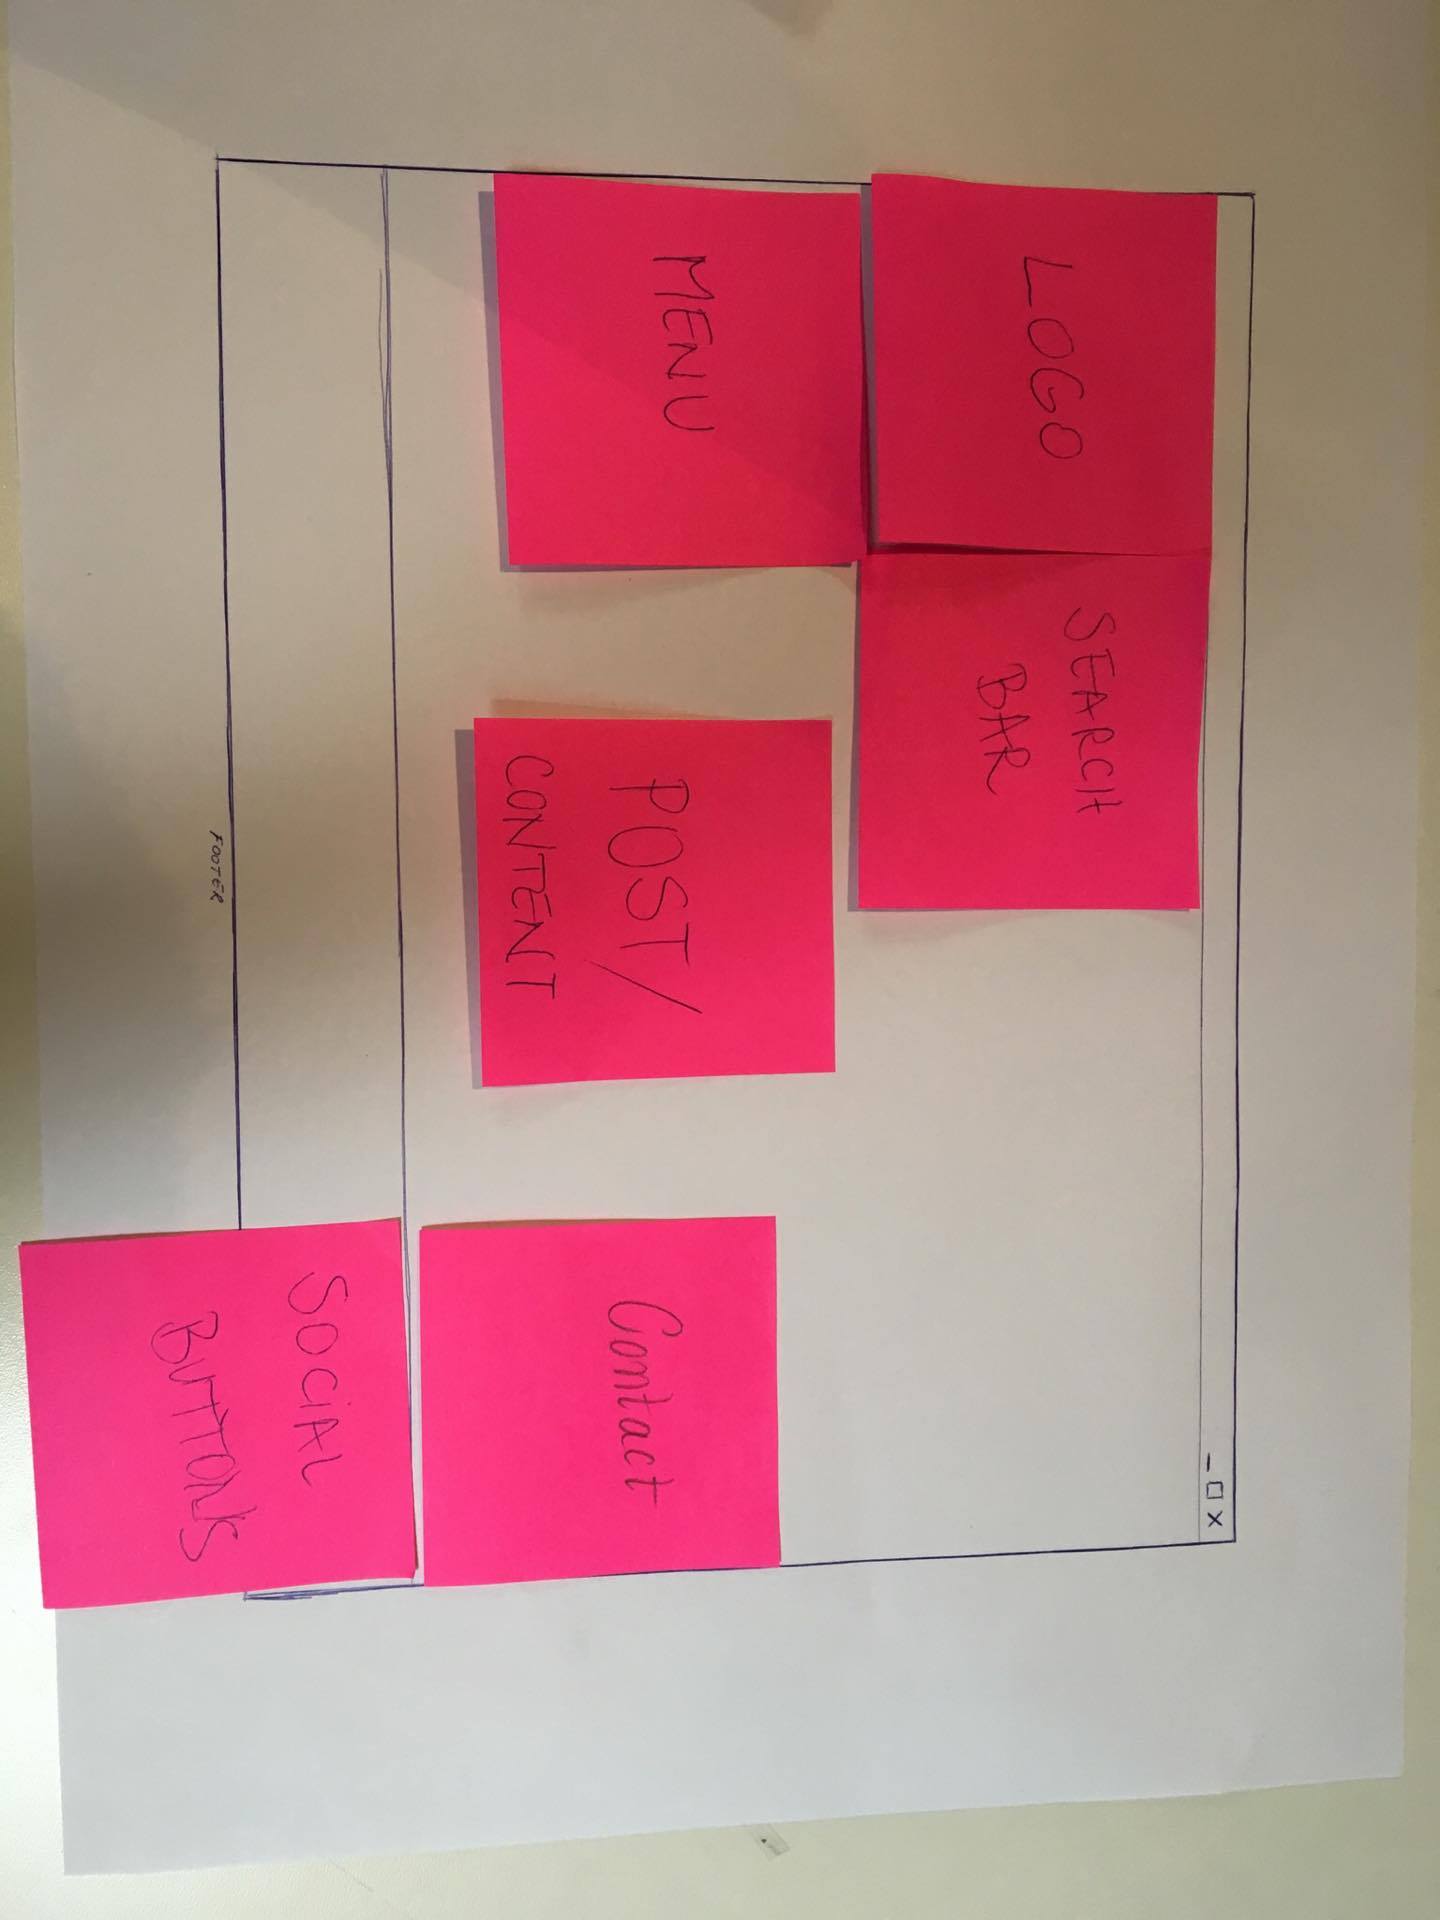 LOGO
SEARCH
BAR
MENU
POST/
CONTENT
Contact
SOCiAL
BUTTONS
FOOTER